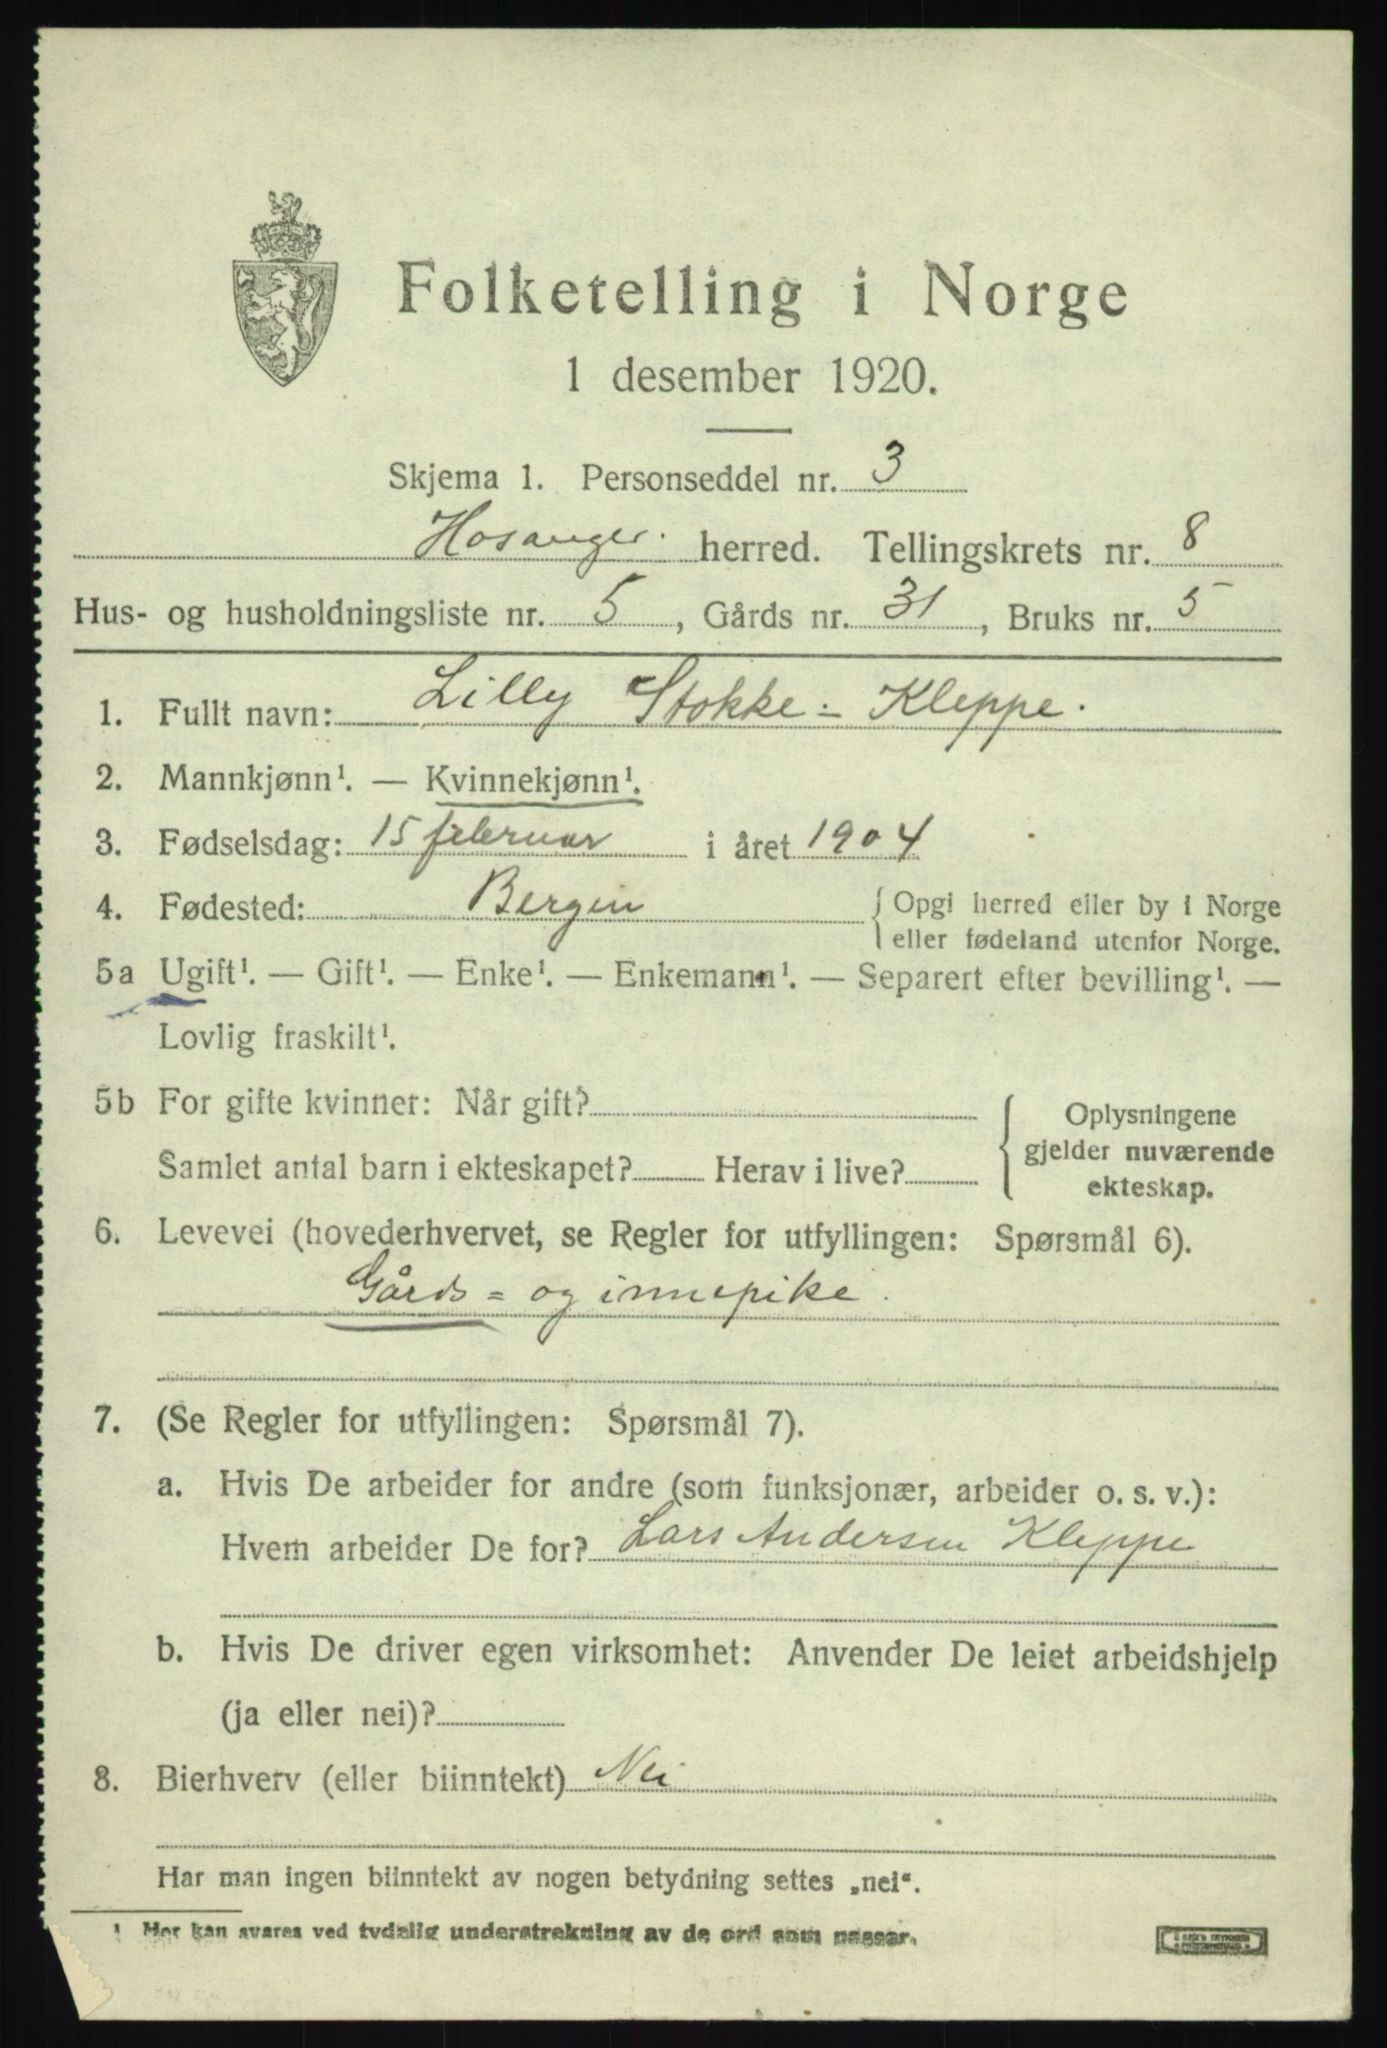 Folketelling i Norge
1 desember 1920.
Skjema 1. Personseddel nr. 3
Hosanger. herred. Tellingskrets nr. 8
Hus- og husholdningsliste nr. 5, Gårds nr. 31, Bruks nr. 5
1. Fullt navn: Lilly Stokke - Kleppe.
2. Mannkjønn¹. — Kvinnekjønn¹.
3. Fødselsdag: 15 februar i året 1904
4. Fødested: Bergen { Opgi herred eller by i Norge
eller fødeland utenfor Norge.
5a Ugift¹. — Gift¹. — Enke¹. — Enkemann¹. — Separert efter bevilling¹. —
Lovlig fraskilt¹.
5b For gifte kvinner: Når gift?
Samlet antal barn i ekteskapet? Herav i live?
Oplysningene
gjelder nuværende
ekteskap.
6. Levevei (hovederhvervet, se Regler for utfyllingen: Spørsmål 6).
Gårds = og innepike.
7. (Se Regler for utfyllingen: Spørsmål 7).
a. Hvis De arbeider for andre (som funksjonær, arbeider o. s. v.):
Hvem arbeider De for? Lars Andersen Kleppe
b. Hvis De driver egen virksomhet: Anvender De leiet arbeidshjelp
(ja eller nei)?
8. Bierhverv (eller biinntekt) Nei
Har man ingen biinntekt av nogen betydning settes „nei“.
¹ Her kan svares ved tydelig understrekning av de ord som passer.